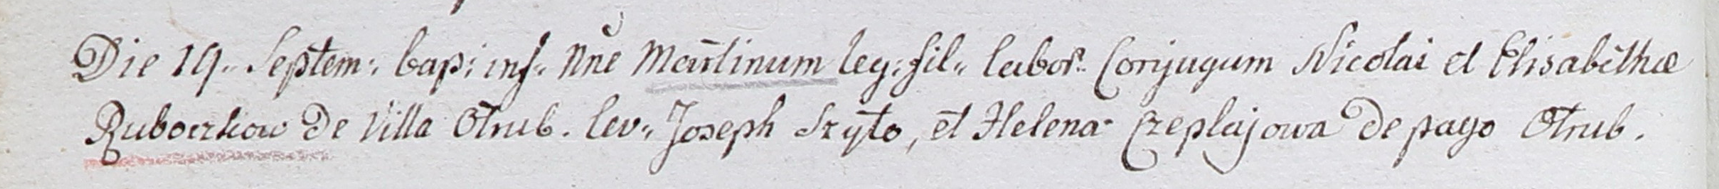 Die 19.. Septem: bap: inf.. Nne Martinum leg: fil.. labor. Conjugum Nicolai et Elisabethae
Ruboczkow de Villa Otrub. lev.. Joseph Szyto, et Helena Czeplajowa de pago Otrub.